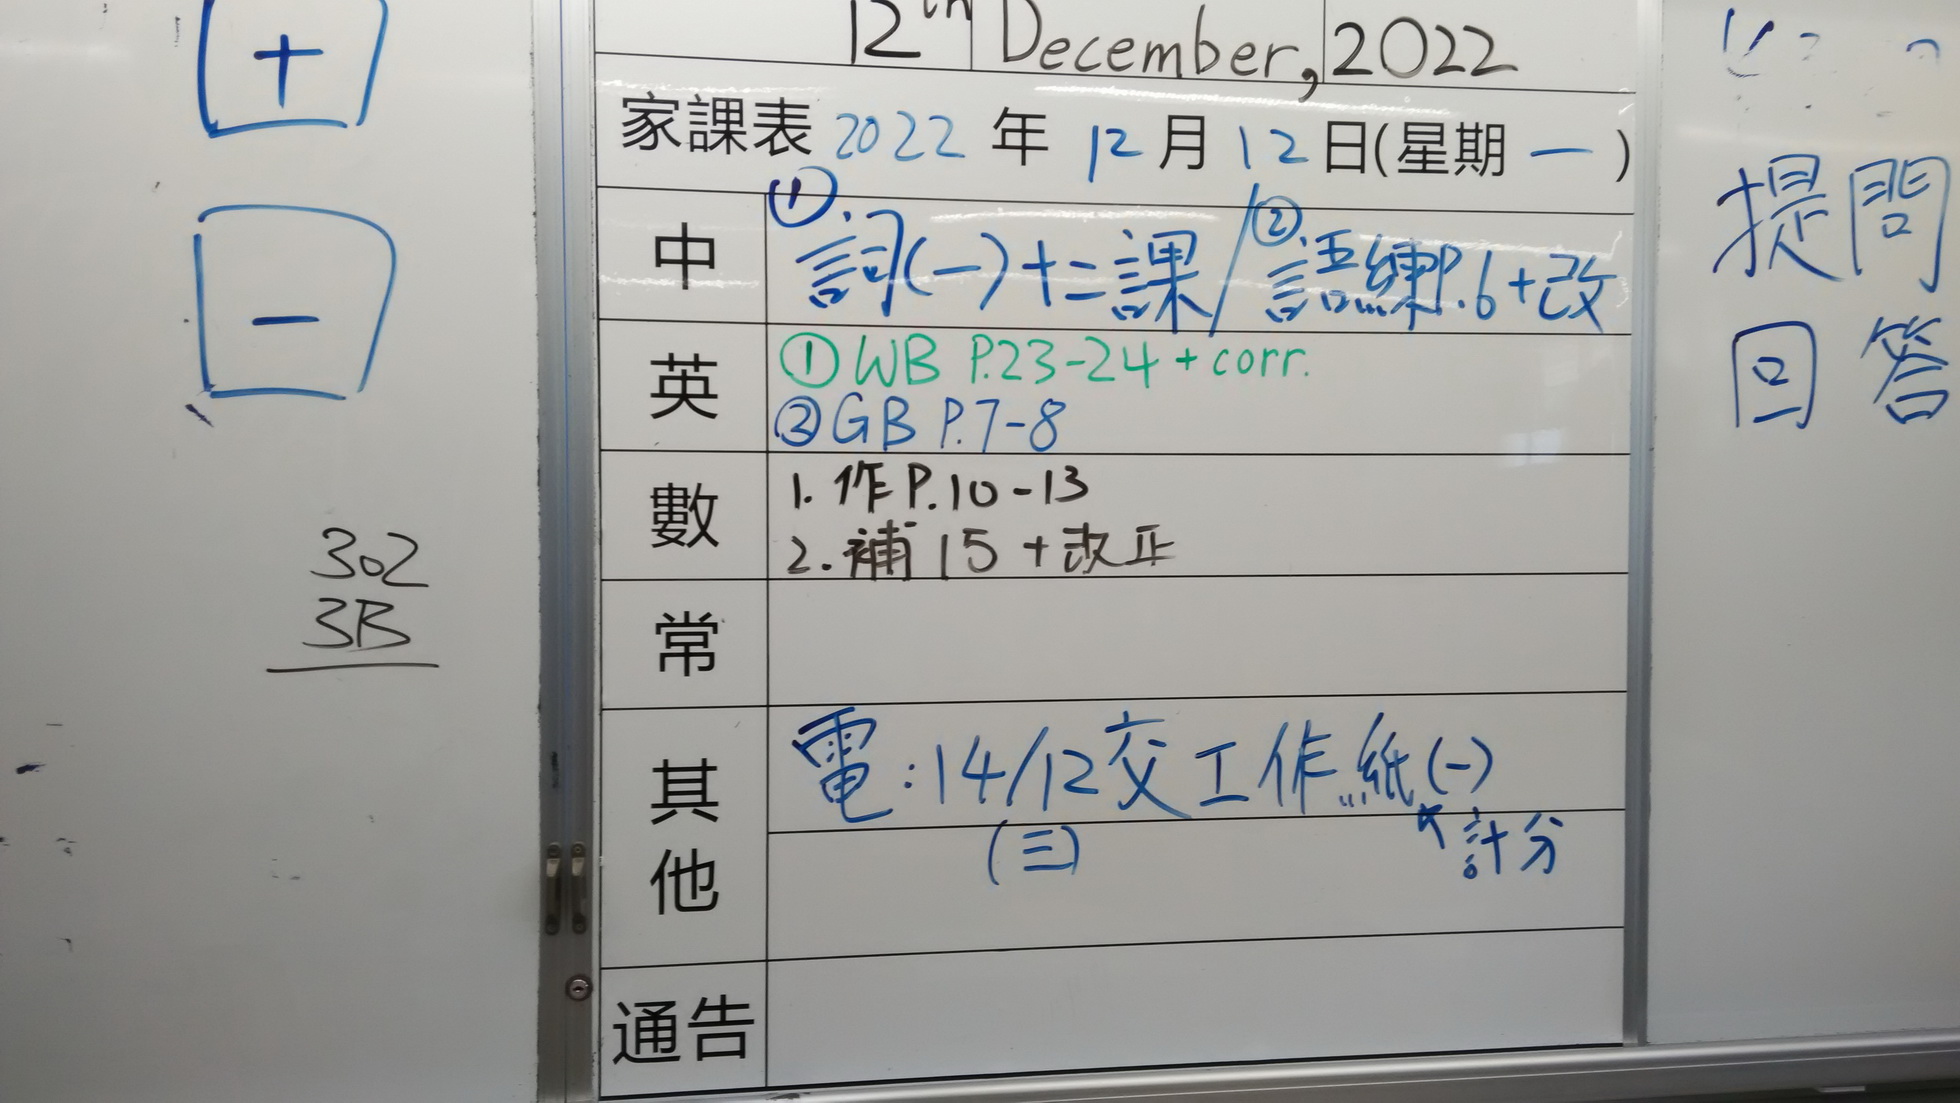 +
-
302
3B
12th December, 2022
家課表 2022 年 12 月 12 日(星期 一 )
中 ①.詞(一)十二課/②.語練P.6+改
英 ①WB P.23-24 + corr.
②GB P.7-8
數 1. 作P.10-13
2. 補15+改正
常
其他 電:14/12交工作紙(一)
(三) 計分
通告
提問
回答